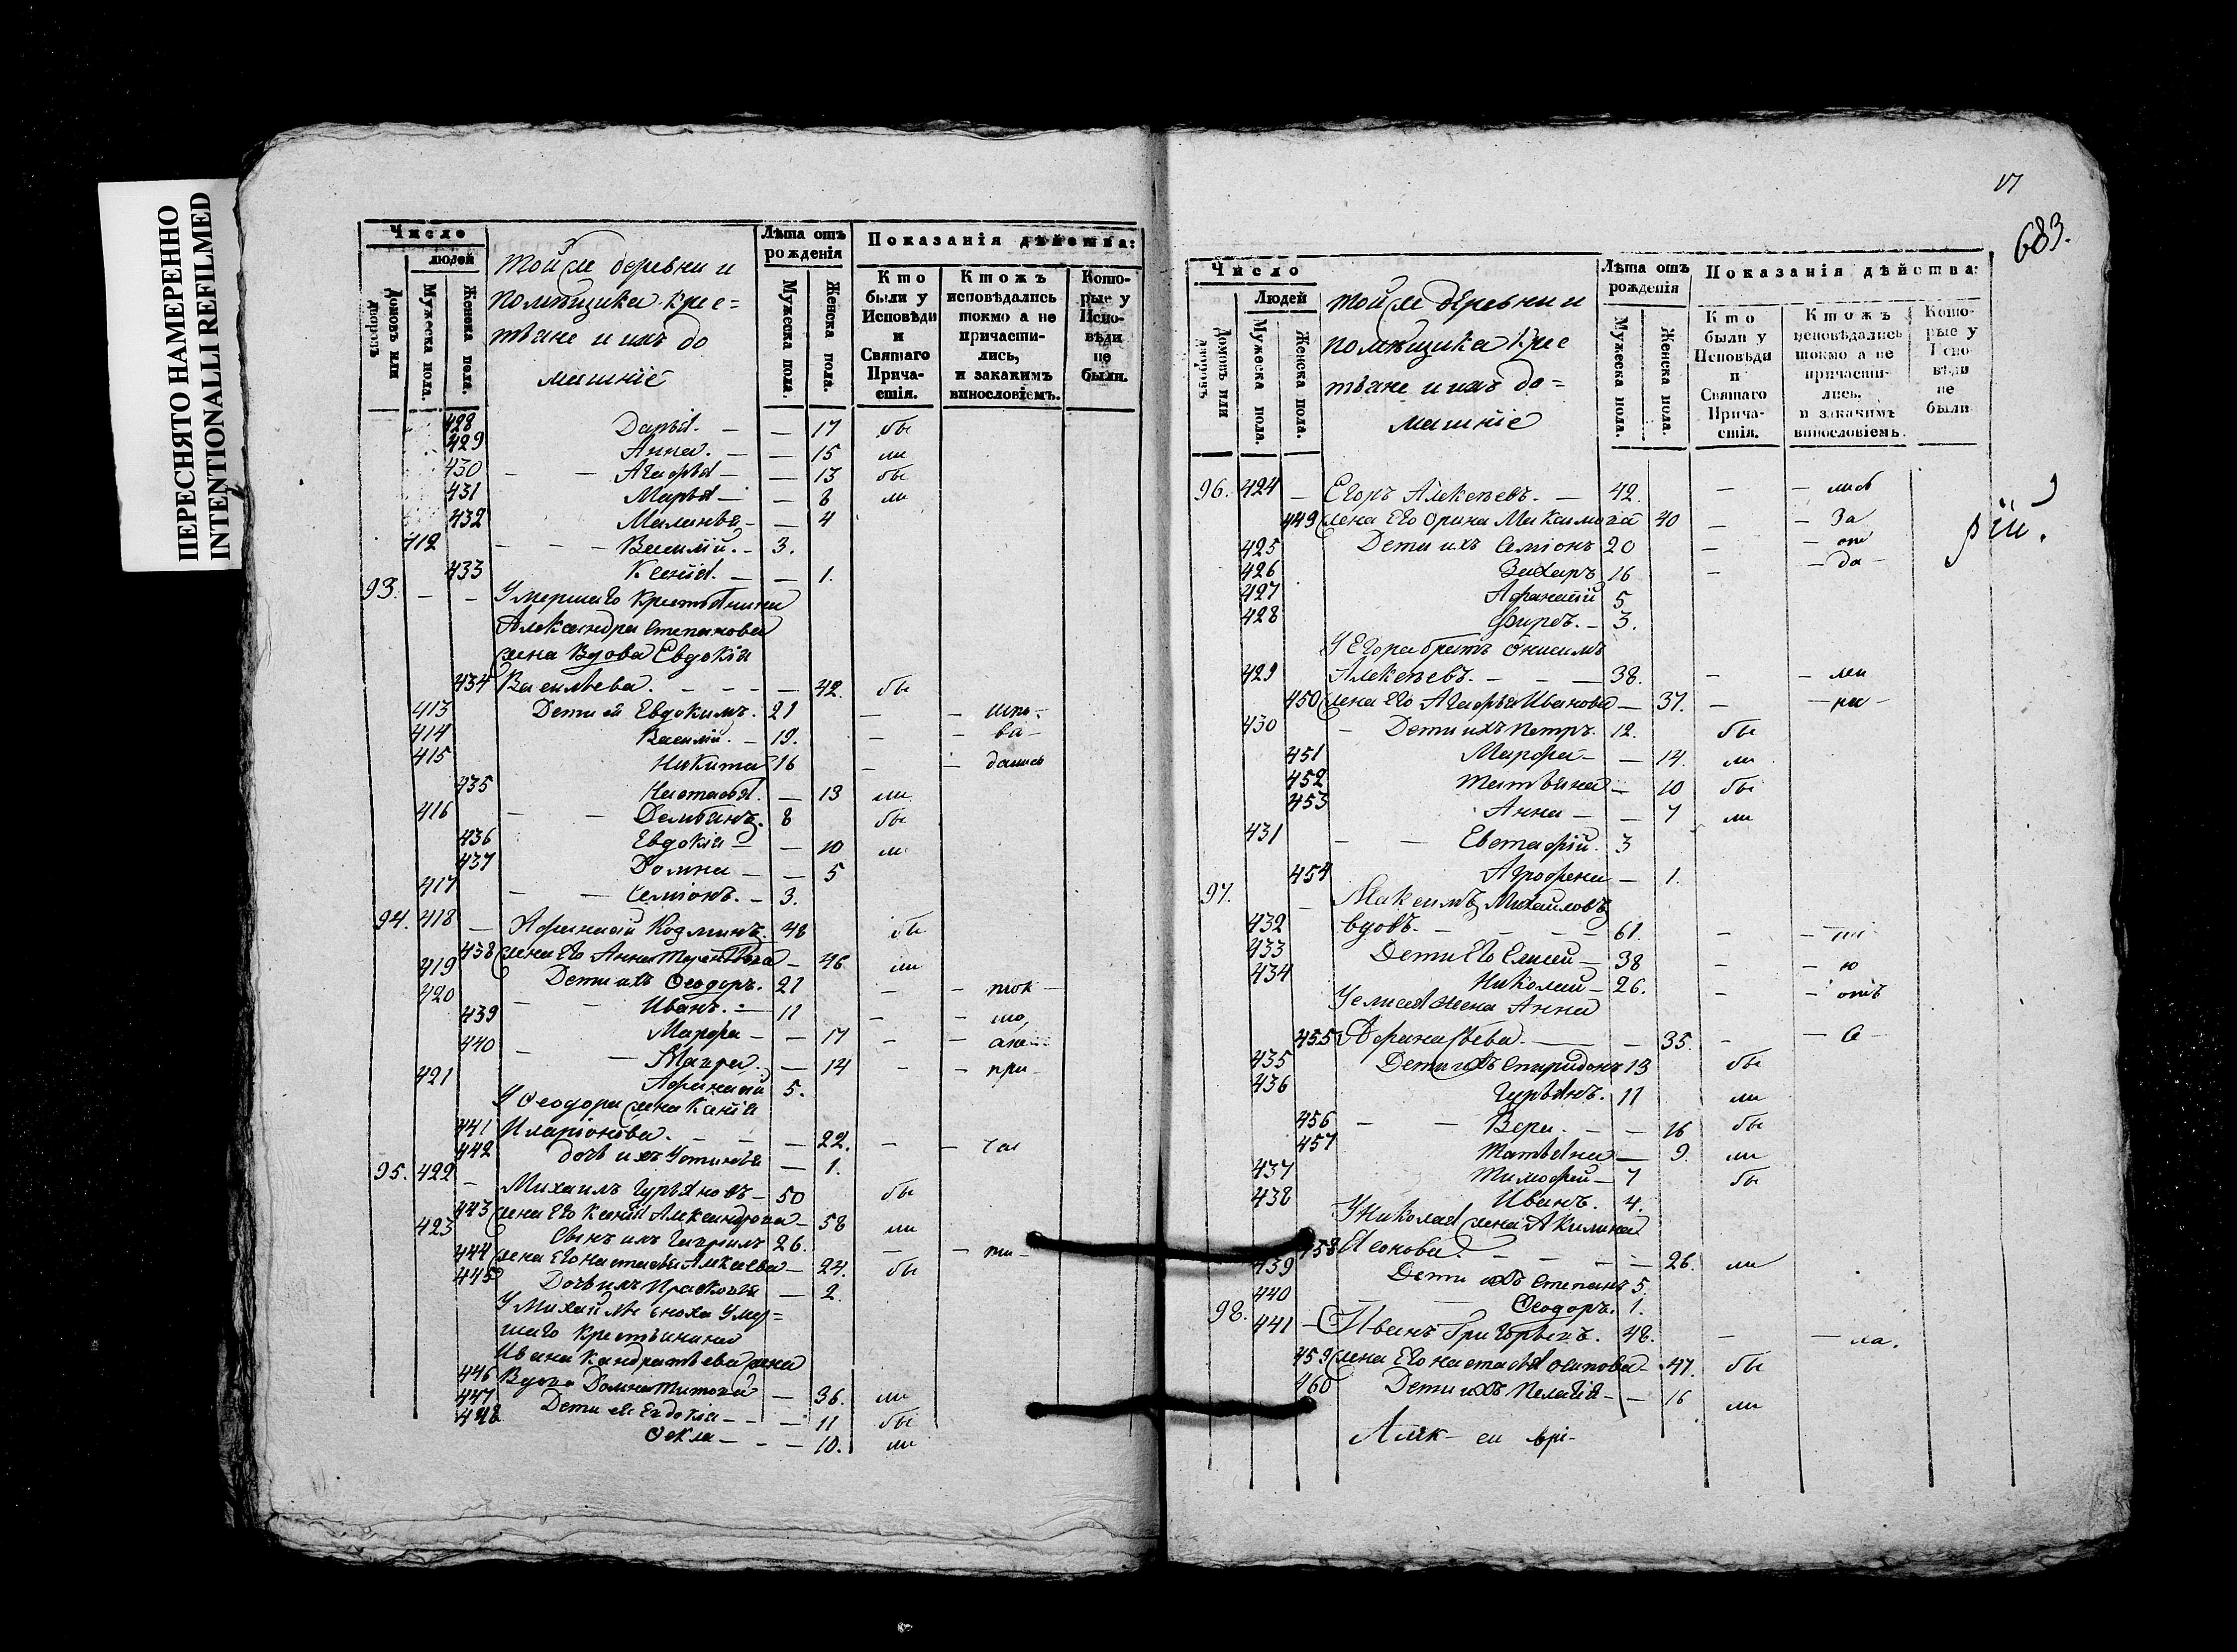 ПЕРЕСНЯТО НАМЕРЕННО
INTENTIONALLI REFILMED
Число
людей
Домовъ или дворовъ
Мужеска пола.
Женска пола.
той же деревни и
помѣщика крес=
тьяне и ихъ до
машніе
Лѣта отъ рожденія
Мужеска пола.
Женска пола.
Показанія дѣйства:
Кто были у Исповѣди и Святаго Прича-стія.
Ктожъ исповѣдались токмо а не причасти-лись, и закакимъ винословіемъ.
Кото-рые у Испо-вѣди не были.
428 Дарья. — — 17 бы
429 Анна. — — 15 ли
430 — — Агафья — — 13 бы
431 Марья — — 8 ли
432 Маланья — — 4
412 — — — Василій. — 3.
433 Ксенія. — — 1.
93. — — Умершаго крестьянина
Александра Степанова
жена вдова Евдокія
434 Васильева. — — — — 42. бы
413 Дети ей Евдокимъ. 21 — — испо-
414 Василій. — 19. — — ва —
415 Никита 16 — — дались
435 Настасья. — 13 ли
416 — — Демьянъ. 8 бы
436 Евдокія — — 10 ли
437 Домна — — 5
417 — — Семіонъ. — 3.
94. 418 — Афанасій Козминъ. 48 бы
438 жена Его Анна Терентьева — 46 ли
419 Дети ихъ Ѳеодоръ. 21 — — ток —
420 — — Иванъ. — 11 — — мо,
439 Марфа — — 17 — — а не
440 — — Мавра. — 14 — — при —
421 Афанасій 5.
У Ѳеодора жена Ксенія
441 Иларіонова. — — — 22. — — час
442 дочь ихъ Устинья — 1.
95. 422 — Михаилъ Гурьяновъ — 50 бы
443 жена Его Ксенія Александрова — 58 ли
423 Сынъ ихъ Гаврилъ 26. — — ти —
444 жена Его Настасья Алексеева — 24. бы
445 Дочь ихъ Прасковья — 2.
У Михайлы сноха Умер=
шаго крестьянина
Ивана Кандратьева жена
446 Вдова Домна Титова — 36. ли
447 Дети ей Евдокія — — — 11 бы
448 Ѳекла — — — 10. ли
17
683.
Число
Людей
Домовъ или дворовъ
Мужеска пола.
Женска пола.
той же деревни и
помѣщика крес
тьяне и ихъ до=
машніе
Лѣта отъ рожденія
Мужеска пола.
Женска пола.
Показанія дѣйства:
Кто были у Исповѣди и Святаго Прича-стія.
Ктожъ исповѣдались токмо а не причасти-лись, и закакимъ винословіемъ.
Кото-рые у Испо-вѣди не были
96. 424 — Егоръ Алексѣевъ. — 42. — — лись
449 жена Его Орина Максимова 40 — — За
425 Дети ихъ Семіонъ 20 — — от
426 Захаръ 16 — — да —
рій.
427 Афанасій 5
428 Спирѣ. — 3.
У Егора братъ Онисимъ
429 Алексѣевъ. — — — 38. — — ли
450 жена Его Агафья Иванова — 37. — — ни —
430 — Дети ихъ Петръ. 12. бы
451 Марфа — — 14. ли
452 Татьяна — 10 бы
453 Анна — — 7 ли
431 — — Евстафій. 3
454 Агрофена — 1.
97. — Максимъ Михайловъ
432 вдовъ. — — — — 61. —
433 Дети Его Елисей — 38 — — ю
434 Николай — 26. — — отъ
У Елисея жена Анна
455 Афанасьева. — — — 35. — — С —
435 Дети ихъ Спиридонъ 13 бы
436 Гурьянъ. 11 ли
456 — — Вера. — — 16 бы
457 Татьяна — 9. ли
437 Тимофей — 7 бы
438 Иванъ. 4.
У Николая жена Акилина
458 Исонова. — — — — 26. ли
439 Дети ихъ Степанъ 5.
440 — — Ѳеодоръ. 1.
98. 441 — Иванъ Григорьевъ. 48. — — ла.
459 жена Его Настасья Осипова — 47. бы
460 Дети ихъ Пелагія — — 16 ли